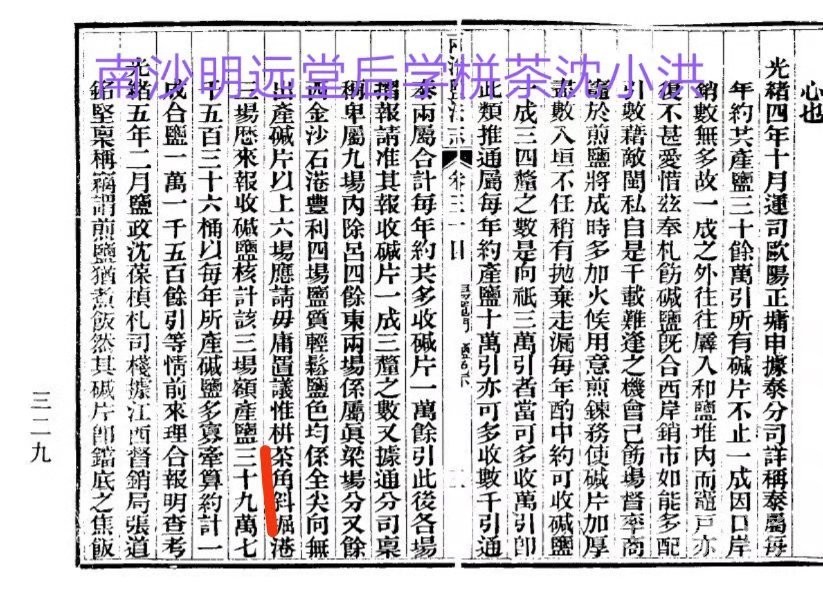 南沙明远堂后学栟茶沈小洪
心也
光緒四年十月運司歐陽正墉申據泰分司詳稱泰屬每
年約共產鹽三十餘萬引所有碱片不止一成因口岸
銷數無多故一成之外往往羼入和鹽堆內而竈戸亦
復不甚愛惜茲奉札飭碱鹽旣合西岸銷市如能多配
引數藉敵閩私自是千載難逢之機會已飭場督率商
竈於煎鹽將成時多加火候用意煎鍊務使碱片加厚
盡數入垣不任稍有拋棄走漏每年酌中約可收碱鹽
一成三四釐之數是向祇三萬引者當可多收萬引卽
此類推通屬每年約產鹽十萬引亦可多收數千引通
鹽法志 卷三十
泰兩屬合計每年約共多收碱片一萬餘引此後各場
報請准其報收碱片一成三釐之數又據通分司稟
稱卑屬九場內除呂四餘東兩場係屬眞梁場分又餘
西金沙石港豐利四場鹽質輕鬆鹽色均係全尖向無
出產碱片以上六場應請毋庸置議惟栟茶角斜掘港
三場歷來報收碱鹽核計該三場額產鹽三十九萬七
千五百三十六桶以每年所產碱鹽多寡牽算約計一
成合鹽一萬一千五百餘引等情前來理合報明查考
光緒五年二月鹽政沈葆楨札司棧據江西督銷局張道
銘堅稟稱竊謂煎鹽猶煮飯然其碱片卽鐺底之焦飯
三二九